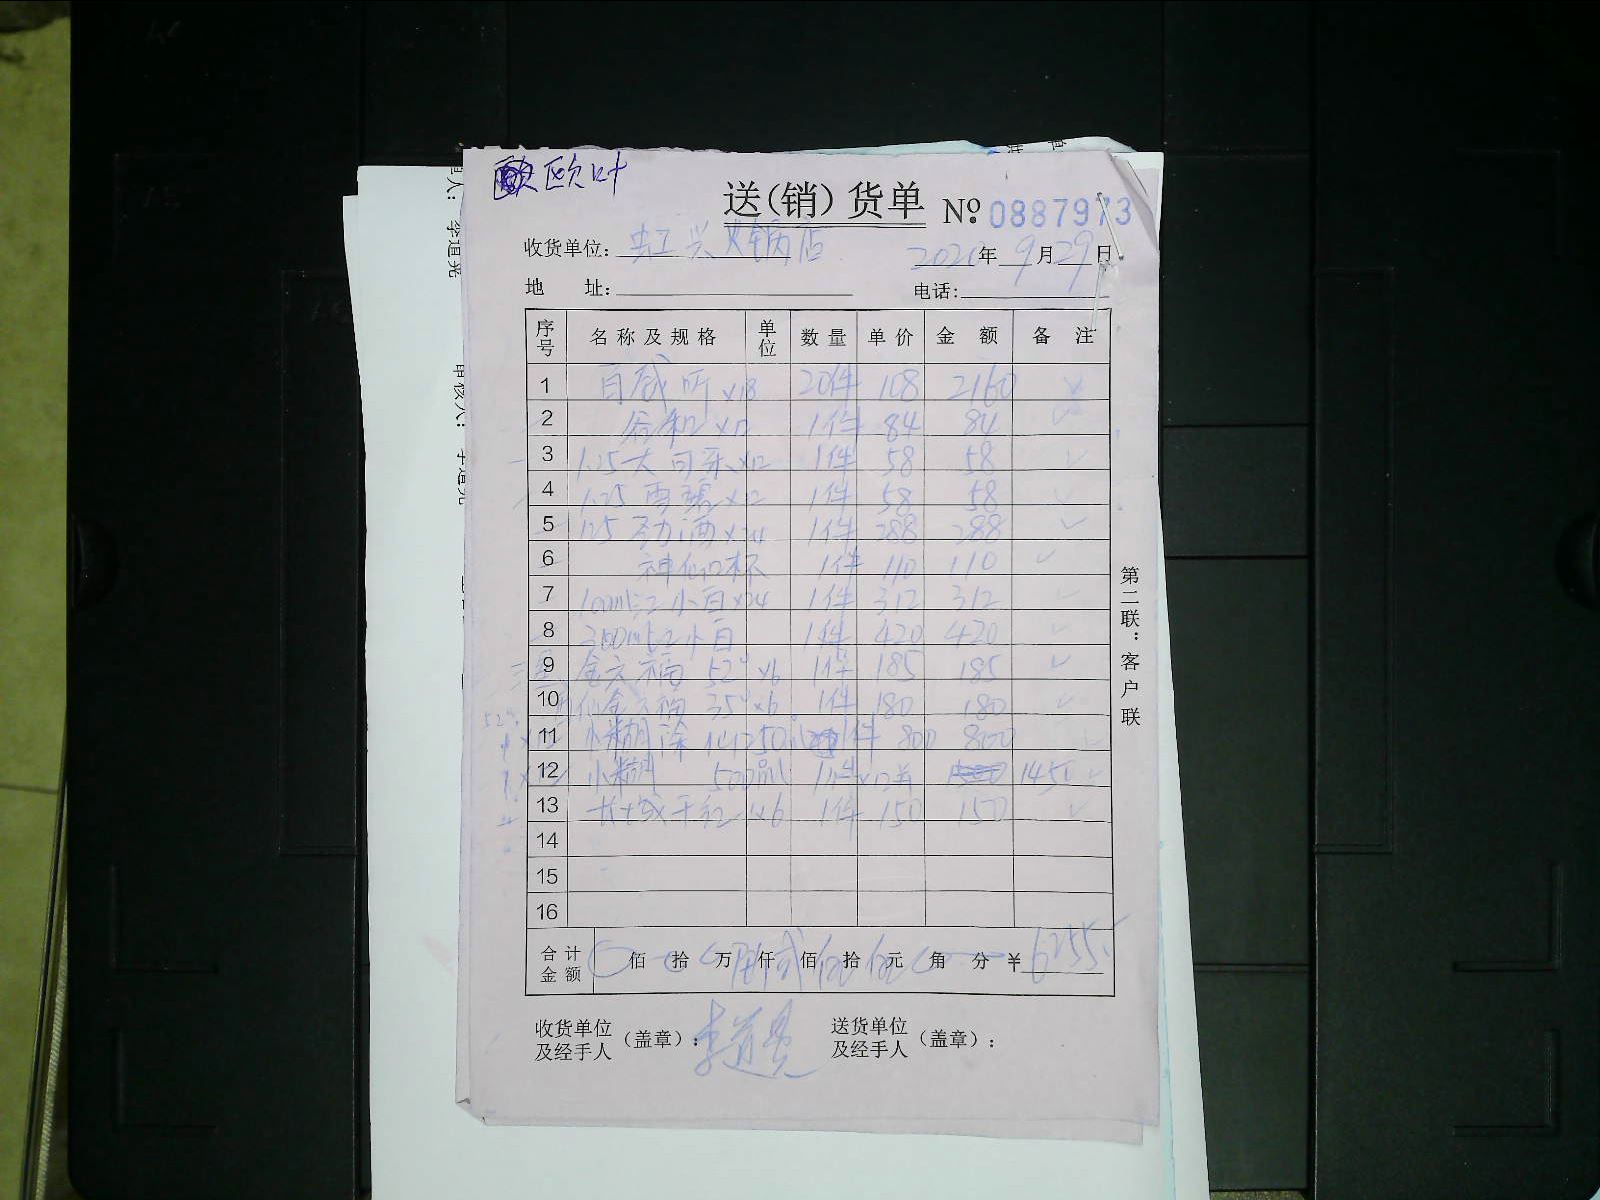 欧叶
送(销)货单 №0887973
收货单位: 虹兴火锅店 2020年9月29日
地 址: 电话:
序号 名称及规格 单位 数量 单价 金额 备注
1 百威听x18 20件 108 2160
2 x12 1件 84 84
3 1.25大可乐x12 1件 58 58
4 1.25雪碧x12 1件 58 58
5 125劲酒x24 1件 288 288
6 神仙杯 1件 110 110
7 100ml江小白x24 1件 312 312
8 300ml江小白 1件 420 420
9 金六福 52° x6 1件 185 185
10 金六福 35° x6 1件 180 180
11 小糊涂仙250 1件 800 800
12 小糊 500 1件x12 1450
13 长城干红 1x6 1件 150 150
14
15
16
合计金额 佰 拾 万 仟 佰 拾 元 角 分 ¥6255
收货单位及经手人(盖章): 李道光 送货单位及经手人(盖章):
第二联:客户联
李道光
审核人: 李道光